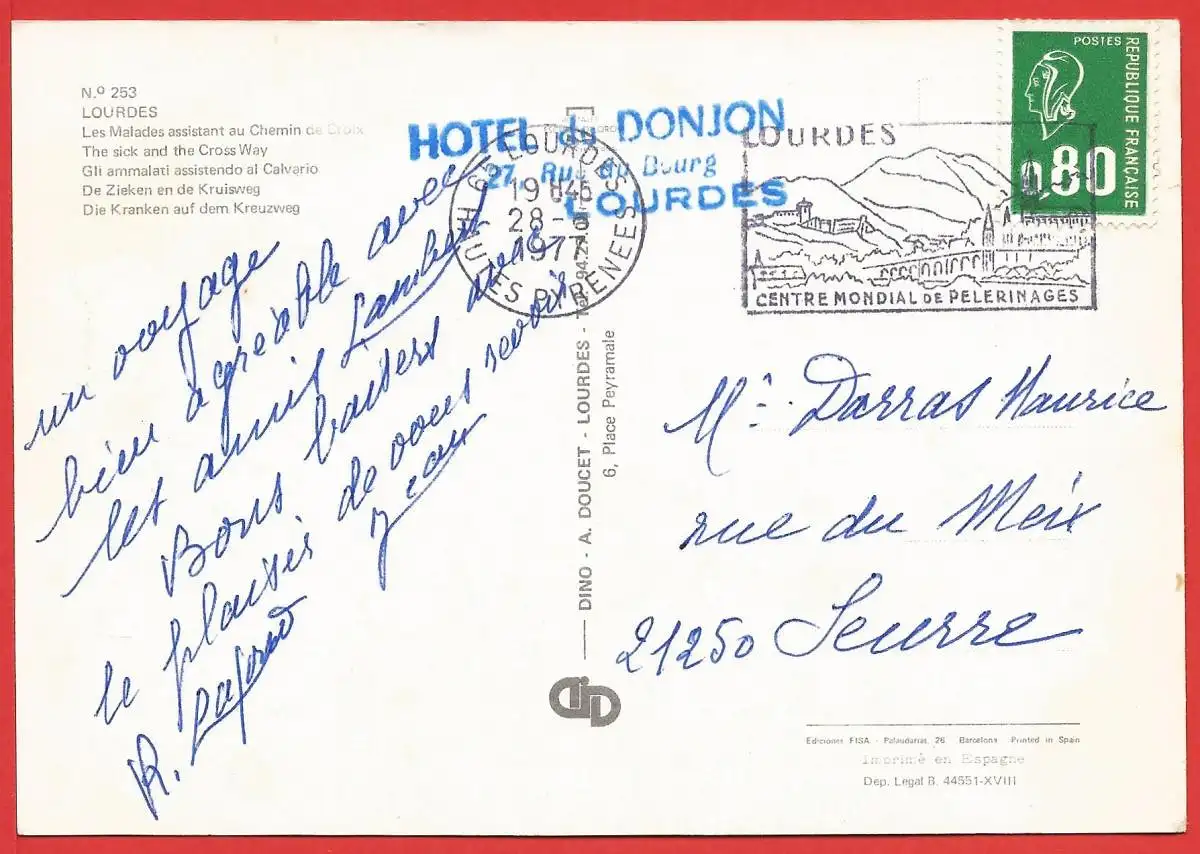 N.º 253
LOURDES
Les Malades assistant au Chemin de Croix
The sick and the Cross Way
Gli ammalati assistendo al Calvario
De Zieken en de Kruisweg
Die Kranken auf dem Kreuzweg
HOTEL du DONJON
27, Rue du Bourg
LOURDES
65 LOURDES
19 H45
28 -
1977
HAUTES PYRENEES
LOURDES
CENTRE MONDIAL DE PELERINAGES
POSTES
REPUBLIQUE FRANÇAISE
0,80
un voyage
bien agréable avec
les amis Lambert
Bons baisers avec
le plaisir de vous revoir
Jean
R. Lafond
DINO - A. DOUCET - LOURDES - 94.27
6, Place Peyramale
Mr Darras Maurice
rue du Meix
21250 Seurre
Ediciones FISA - Palaudarias, 26 Barcelona Printed in Spain
Imprimé en Espagne
Dep. Legal B. 44551-XVIII